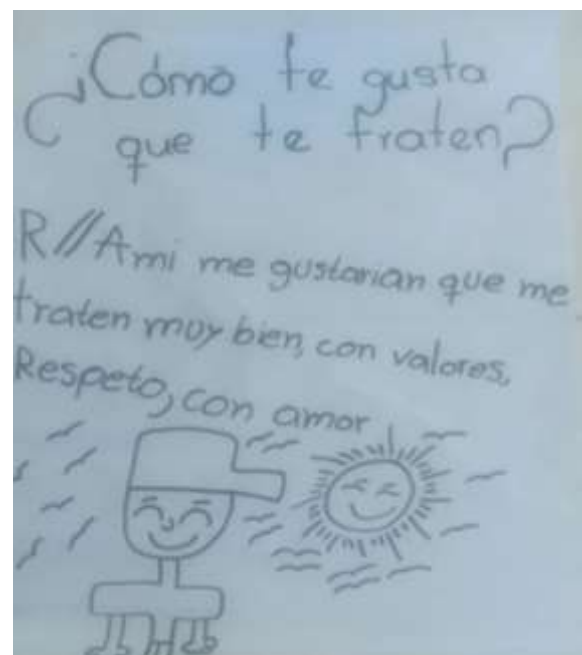 ¿Cómo te gusta
que te traten?
R//A mi me gustarian que me
traten muy bien, con valores,
Respeto, con amor